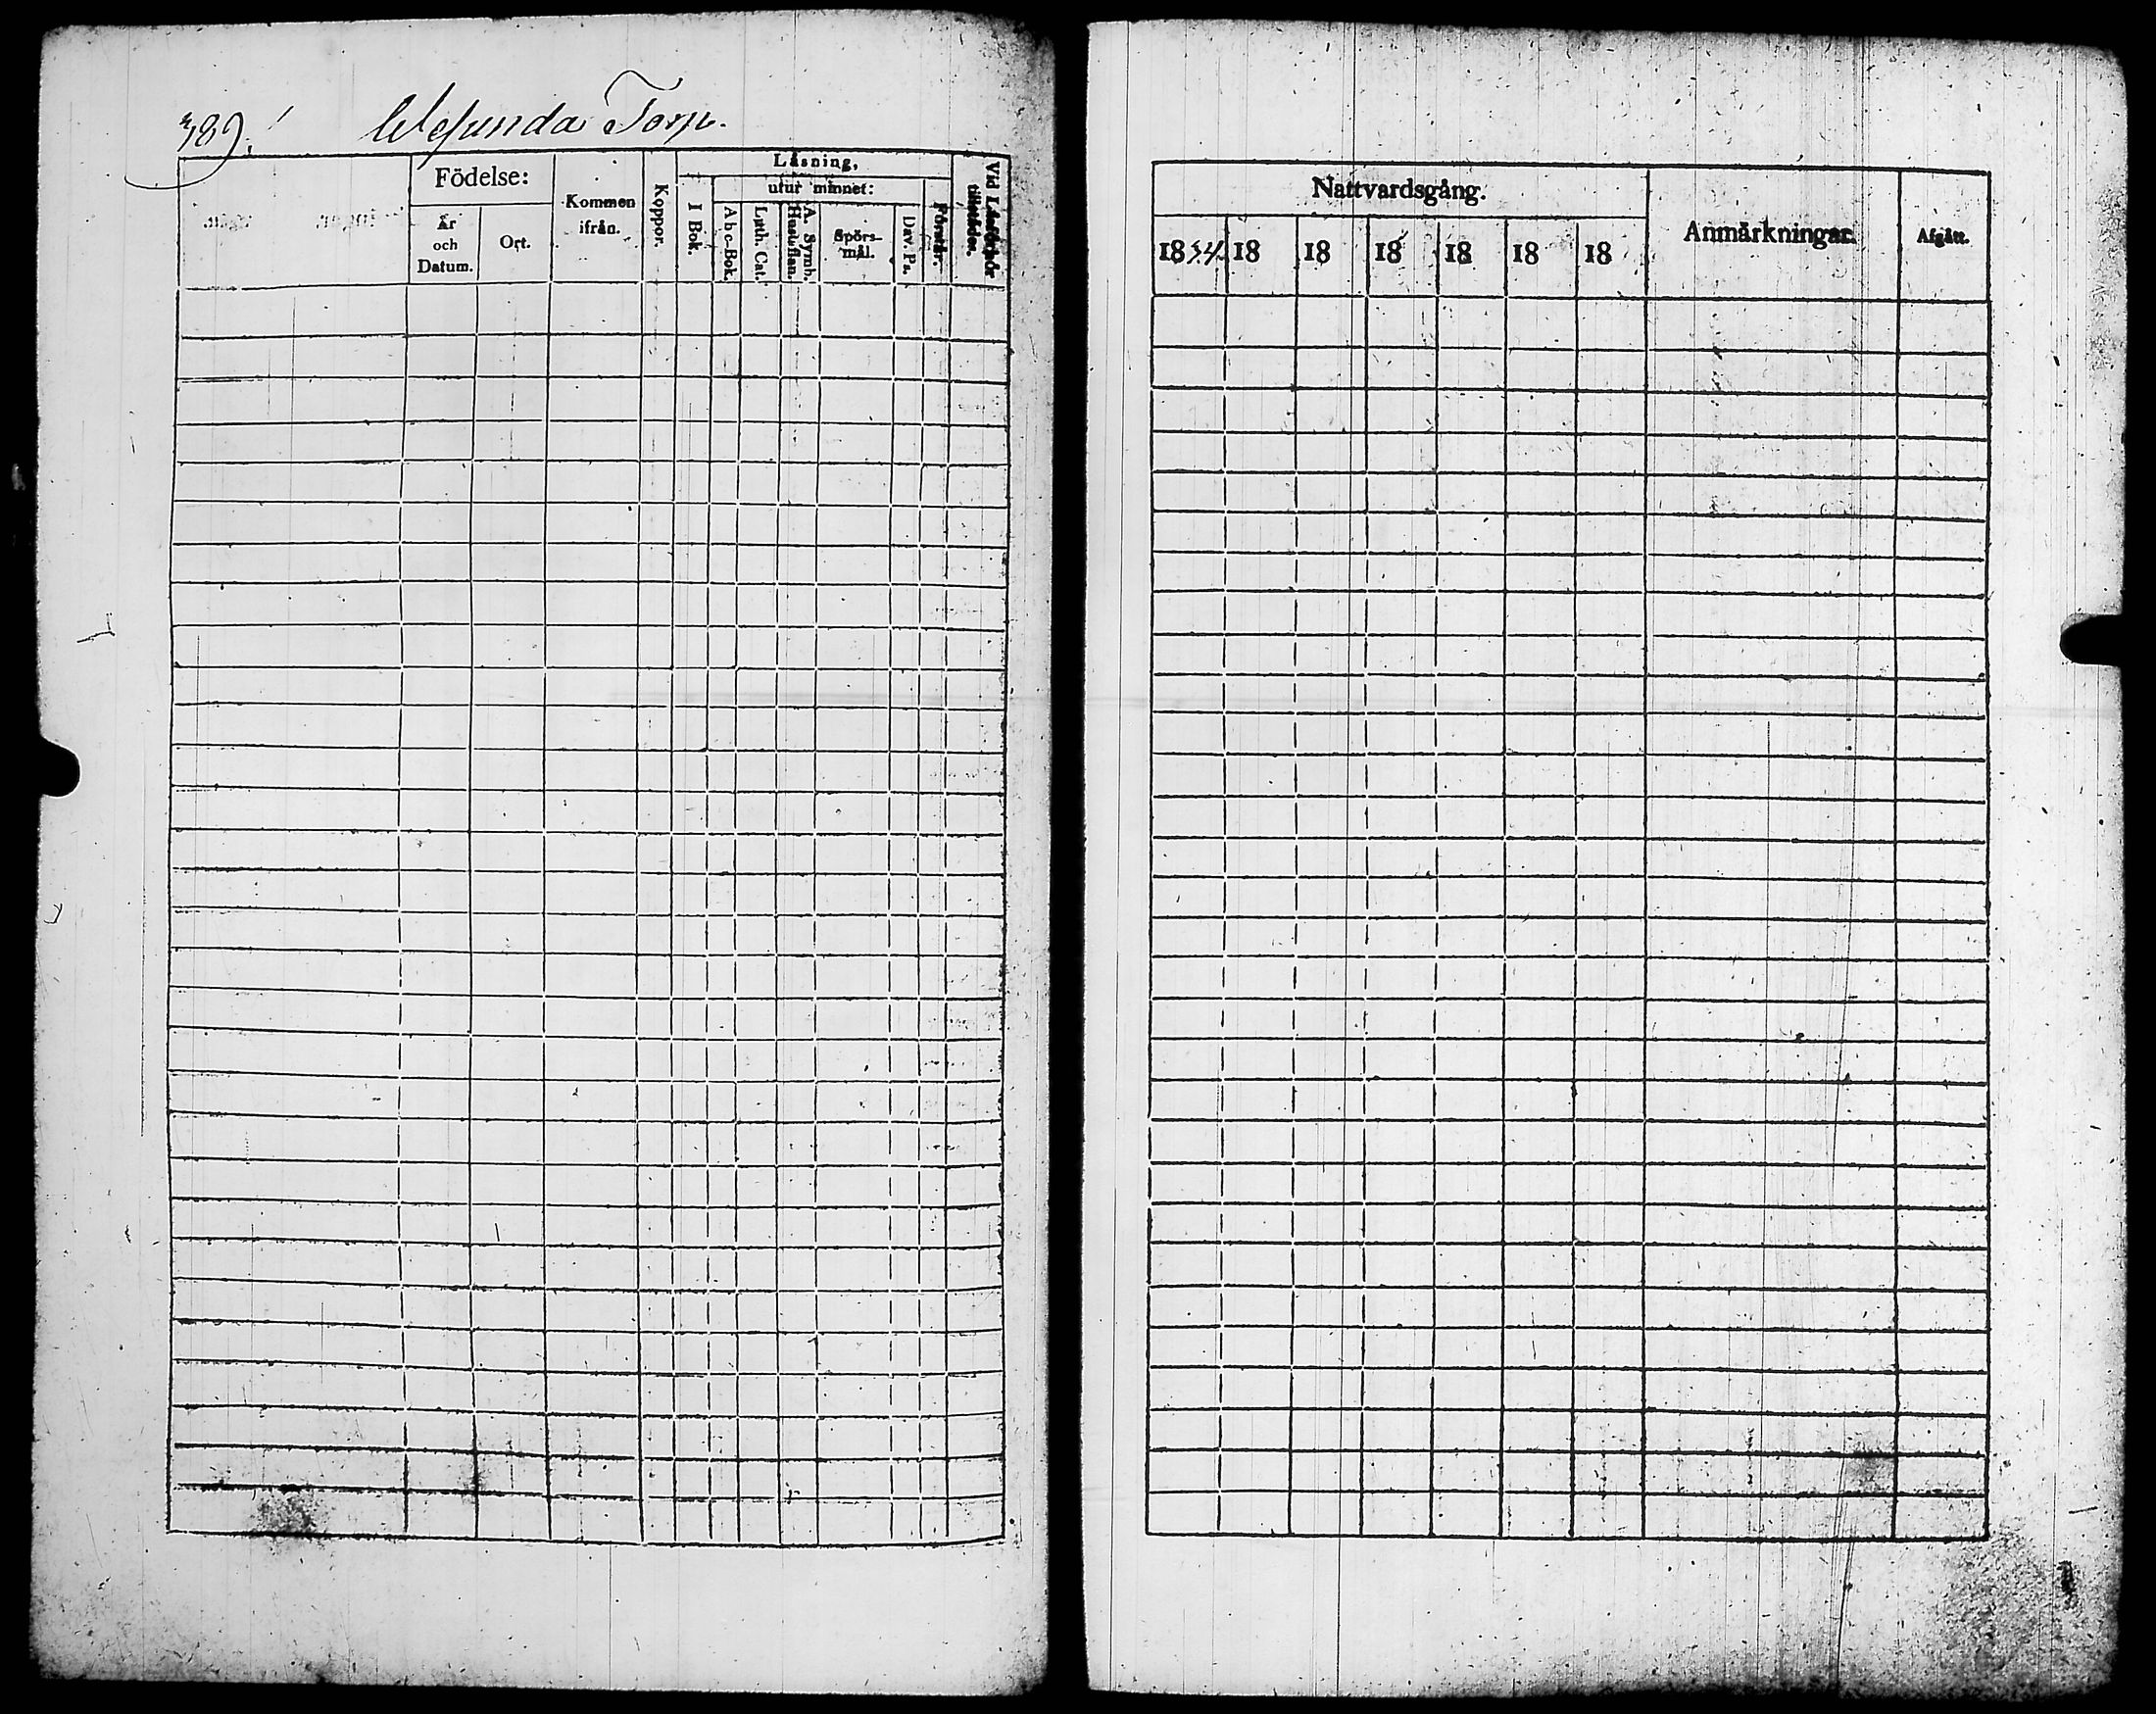 389.
Torp.
Födelse:
År
och
Datum.
Ort.
Kommen
ifrån.
Koppor.
Läsning,
I Bok.
utur minnet:
Abc-Bok.
Luth. Cat.
A. Symb.
Hustaflan.
Spörs-
mål.
Dav. Ps.
Förstår.
Vid Läsförhör
tillstädes.
Nattvardsgång.
1834.
18
18
18
18
18
18
Anmärkningar.
Afgått.